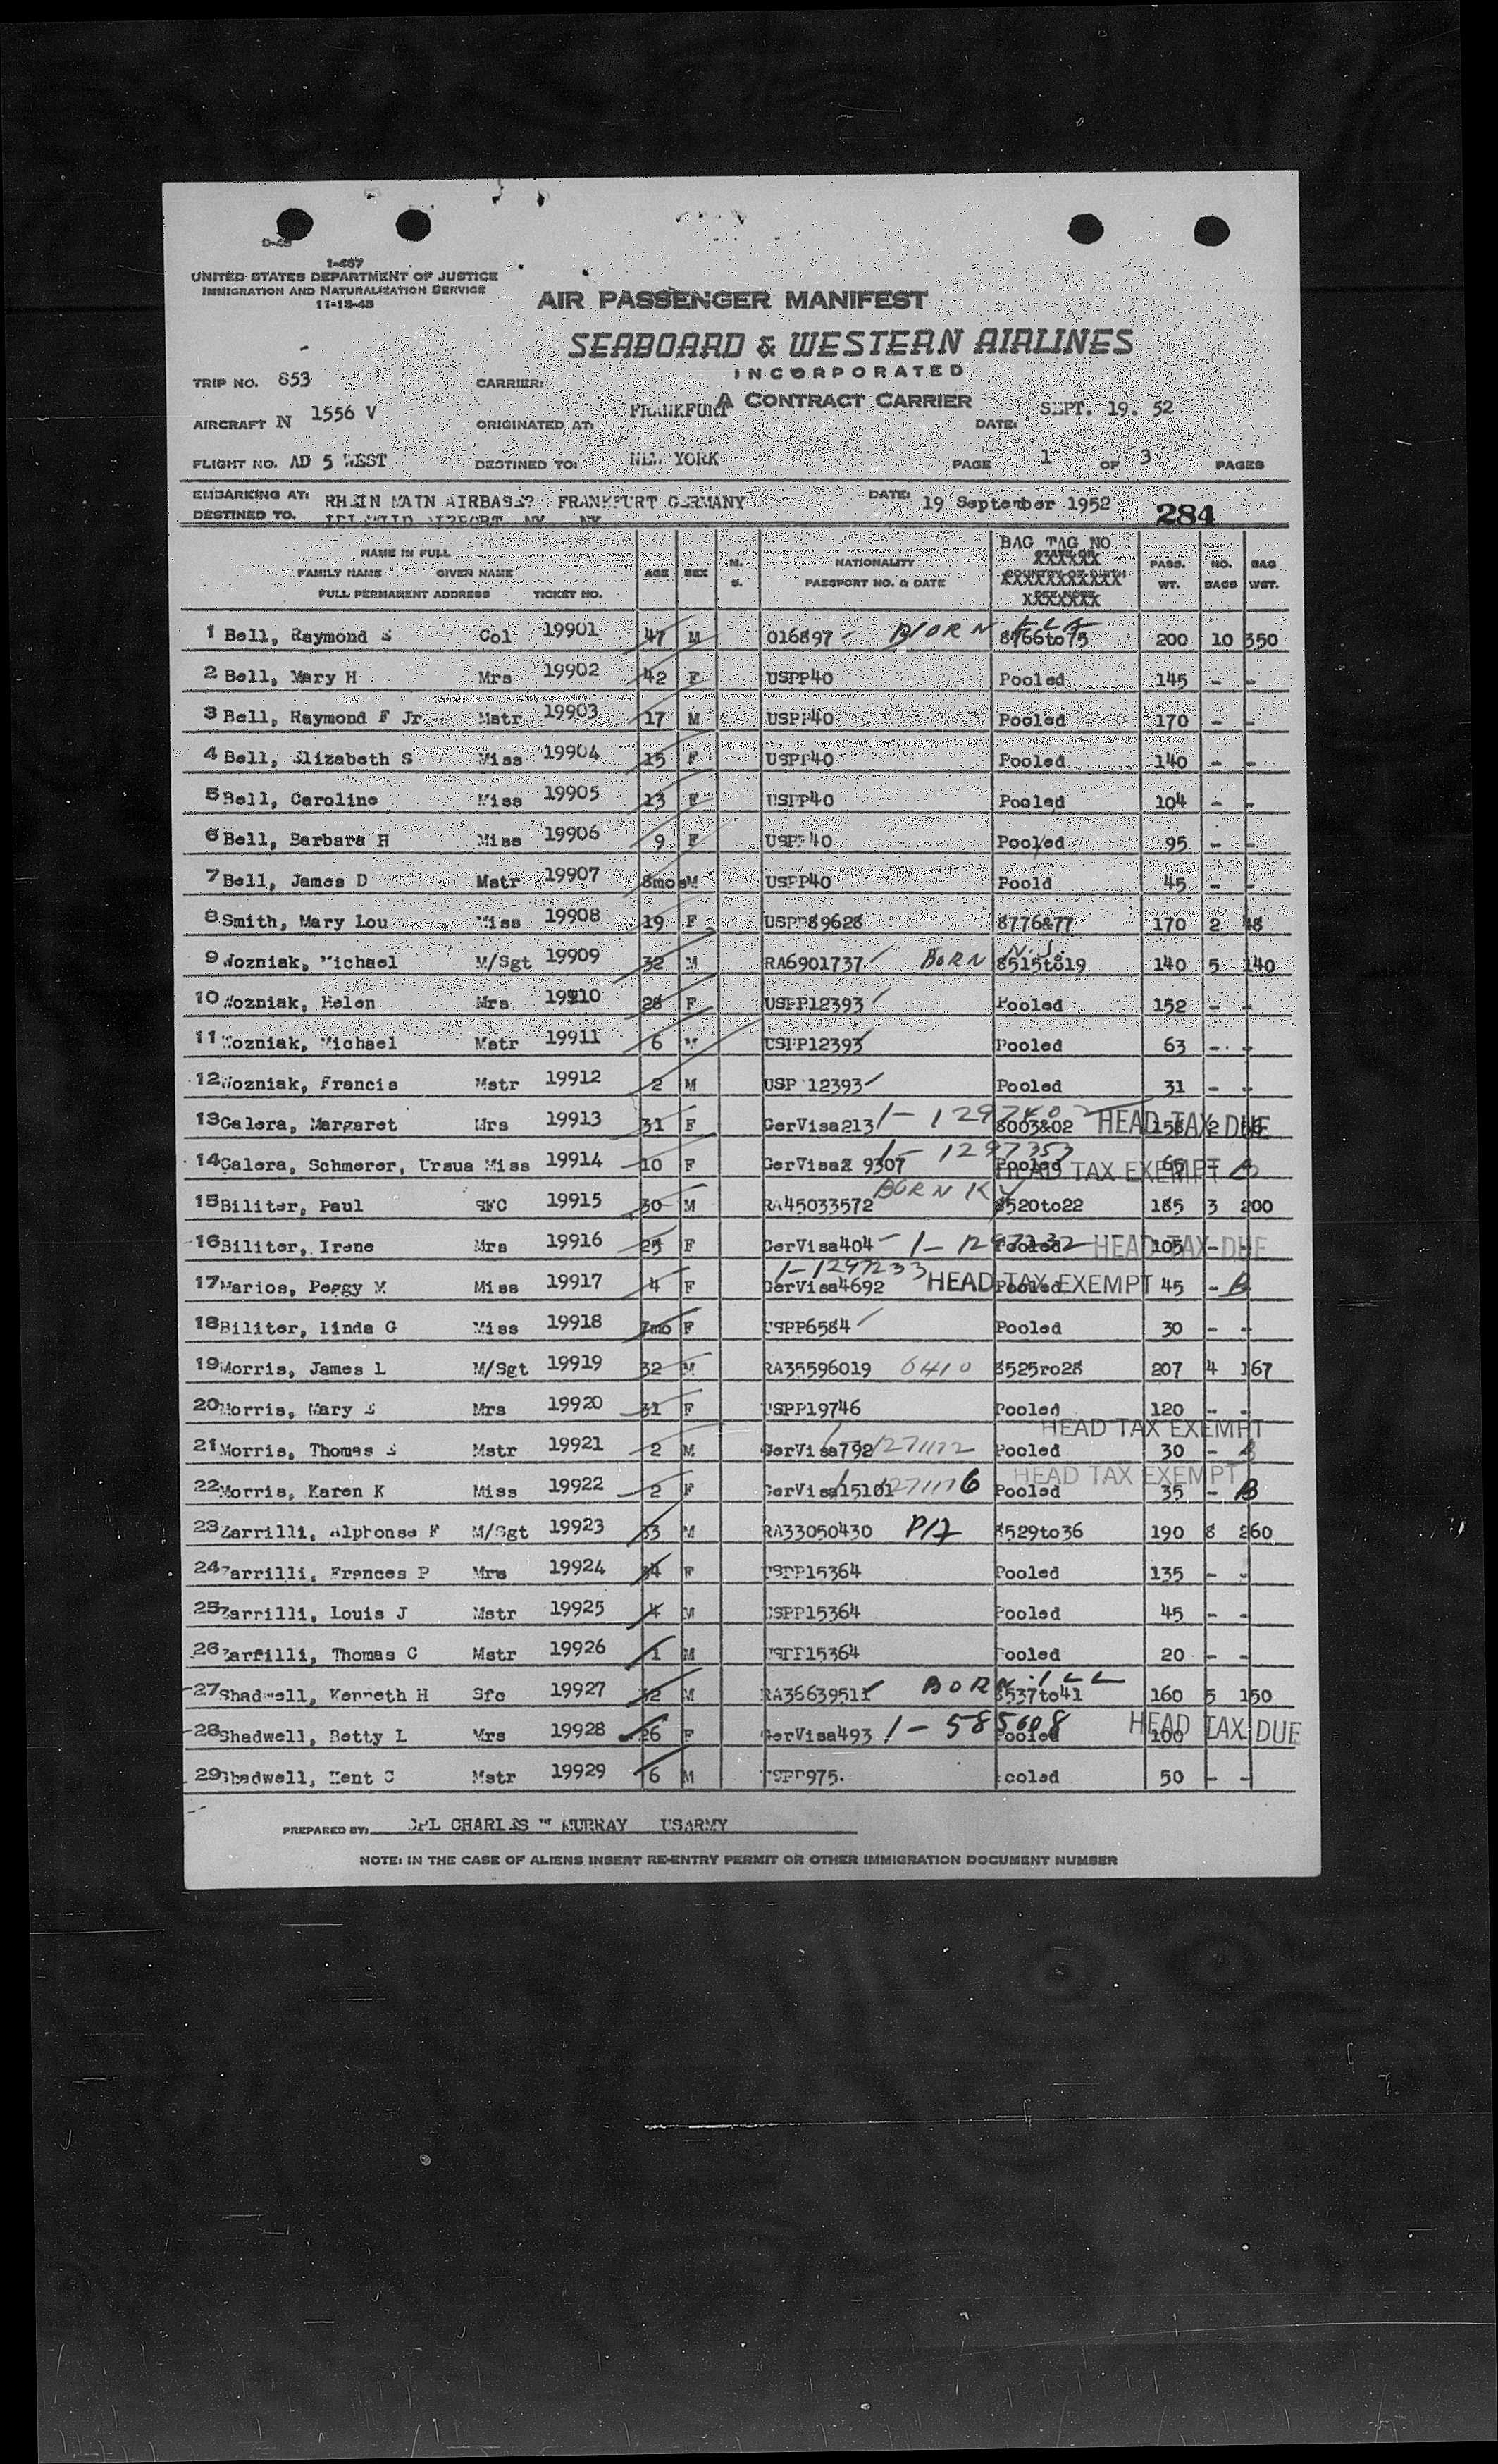 D-45
1-467
UNITED STATES DEPARTMENT OF JUSTICE
IMMIGRATION AND NATURALIZATION SERVICE
11-18-45
AIR PASSENGER MANIFEST
SEABOARD & WESTERN AIRLINES
INCORPORATED
A CONTRACT CARRIER
TRIP NO. 853 CARRIER:
AIRCRAFT N 1556 V ORIGINATED AT: FRANKFURT DATE: SEPT. 19. 52
FLIGHT NO. AD 5 WEST DESTINED TO: NEW YORK PAGE 1 OF 3 PAGES
EMBARKING AT: RHEIN MAIN AIRBASS? FRANKFURT GERMANY DATE: 19 September 1952 284
DESTINED TO. IDLEWILD AIRPORT NY NY
NAME IN FULL
FAMILY NAME GIVEN NAME
FULL PERMANENT ADDRESS TICKET NO. AGE SEX M. S. NATIONALITY PASSPORT NO. & DATE BAG TAG NO PASS. WT. NO. BAGS BAG WGT.
1 Bell, Raymond S Col 19901 47 M 016897 BORN FLA 8766to75 200 10 350
2 Bell, Mary H Mrs 19902 42 F USPP40 Pooled 145 - -
3 Bell, Raymond F Jr Mstr 19903 17 M USPP40 Pooled 170 - -
4 Bell, Elizabeth S Miss 19904 15 F USPP40 Pooled 140 - -
5 Bell, Caroline Miss 19905 13 F USPP40 Pooled 104 - -
6 Bell, Barbara H Miss 19906 9 F USPP40 Pooled 95 - -
7 Bell, James D Mstr 19907 8mos M USPP40 Poold 45 - -
8 Smith, Mary Lou Miss 19908 19 F USPP89628 8776&77 170 2 48
9 Wozniak, Michael M/Sgt 19909 32 M RA6901737 BORN N.J. 8515to19 140 5 140
10 Wozniak, Helen Mrs 19910 28 F USPP12393 Pooled 152 - -
11 Wozniak, Michael Mstr 19911 6 M USPP12393 Pooled 63 - -
12 Wozniak, Francis Mstr 19912 2 M USP 12393 Pooled 31 - -
13 Galera, Margaret Mrs 19913 31 F GerVisa213 8003&02 HEAD TAX DUE 158 2
14 Galera, Schmerer, Ursua Miss 19914 10 F GerVisa2 9307 1-1297353 Pooled HEAD TAX EXEMPT 65 -
15 Biliter, Paul SFC 19915 30 M RA45033572 BORN KY 8520to22 185 3 200
16 Biliter, Irene Mrs 19916 25 F GerVisa404 1-1297232 Pooled HEAD TAX DUE 105 - -
17 Marios, Peggy M Miss 19917 4 F GerVisa4692 1-1297233 HEAD TAX EXEMPT Pooled 45 -
18 Biliter, linda G Miss 19918 7mo F USPP6584 Pooled 30 - -
19 Morris, James L M/Sgt 19919 32 M RA35596019 8525ro28 207 4 167
20 Morris, Mary E Mrs 19920 31 F USPP19746 Pooled 120 - -
21 Morris, Thomas E Mstr 19921 2 M GerVisa792 Pooled HEAD TAX EXEMPT 30 -
22 Morris, Karen K Miss 19922 2 F GerVisa15101 Pooled HEAD TAX EXEMPT 35 -
23 Zarrilli, Alphonse F M/Sgt 19923 33 M RA33050430 8529to36 190 8 260
24 Zarrilli, Frances P Mrs 19924 34 F USPP15364 Pooled 135 - -
25 Zarrilli, Louis J Mstr 19925 4 M USPP15364 Pooled 45 - -
26 Zarfilli, Thomas C Mstr 19926 1 M USPP15364 Pooled 20 - -
27 Shadwell, Kenneth H Sfc 19927 32 M RA36639511 BORN ILL 8537to41 160 5 150
28 Shadwell, Betty L Mrs 19928 26 F GerVisa493 1-585608 Pooled HEAD TAX DUE 100
29 Shadwell, Kent C Mstr 19929 6 M USPP975. Pooled 50 - -
PREPARED BY: CPL CHARLES W MURRAY USARMY
NOTE: IN THE CASE OF ALIENS INSERT RE-ENTRY PERMIT OR OTHER IMMIGRATION DOCUMENT NUMBER